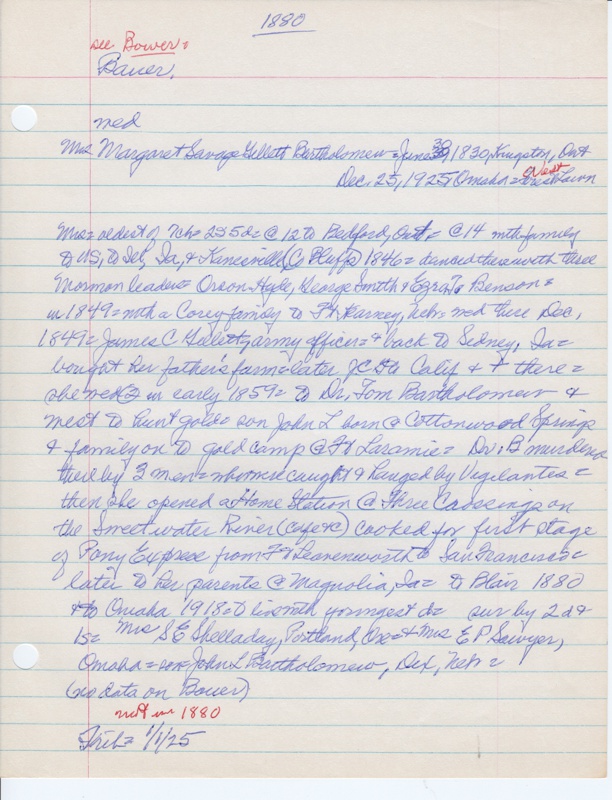 1880
see Bower=
Bauer,
med
Mrs. Margaret Savage Gellett Bartholomew= June 30, 1830, Kingston, Ont
Dec. 25, 1925, Omaha= West Lawn
Mrs= oldest of 7ch= 2s 5d= @ 12 to Bedford, Ont= @ 14 mth family
to US, to Seb, Ia, & Kanesville (C Bluffs) 1846= danced there with three
Mormon leaders= Orson Hyde, George Smith & Ezra T. Benson=
in 1849= with a Corey family to Ft Kearney, Nebr= med there Dec,
1849= James C Gellett, army officer= & back to Sidney, Ia=
bought her father's farm= later JC to Calif & + there=
she med (2) in early 1859= to Dr. Tom Bartholomew &
west to hunt gold= son John L born @ Cottonwood Springs
& family on to gold camp @ Ft Laramie= Dr. B murdered
there by 3 men= who were caught & hanged by Vigilantes=
then she opened a Home Station @ Three Crossings on
the Sweetwater River (cafe &c) cooked for first stage
of Pony Express from Ft Leavenworth to San Francisco=
later to her parents @ Magnolia, Ia= to Blair 1880
& to Omaha 1918= to live with youngest d= sur by 2d &
1s= Mrs S E Shelladay, Portland, Ore= & Mrs E P Sawyer,
Omaha= son John L Bartholomew, Dix, Nebr=
(no data on Bauer)
not in 1880
Trib= 1/1/25